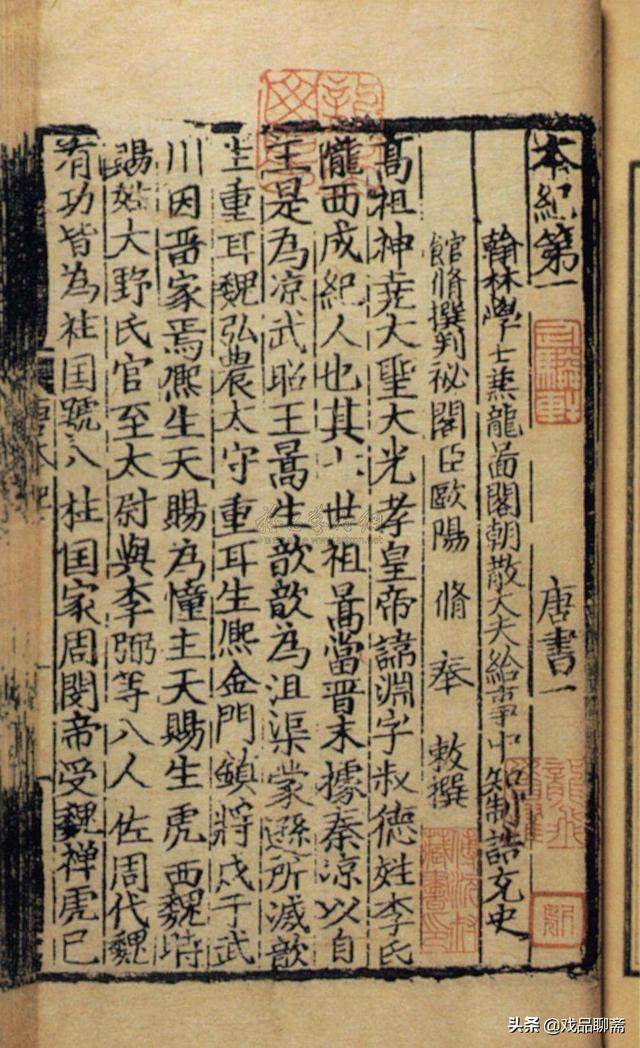 本紀第一 唐書一
翰林學士兼龍啚閣朝散大夫給事中知制誥充史
館脩撰判祕閣臣歐陽 脩 奉 敕撰
髙祖神堯大聖大光孝皇帝諱淵字叔德姓李氏
隴西成紀人也其世祖暠當晉末據秦凉以自
王是為凉武昭王暠生歆歆為沮渠蒙遜所滅歆
生重耳魏弘農太守重耳生熈金門鎮將戍于武
川因畱家焉熈生天賜為憧主天賜生虎西魏時
賜姓大野氏官至太尉與李弼等八人佐周代魏
有功皆為柱国號八柱国家周閔帝受魏禅虎已
头条 @戏品聊斋